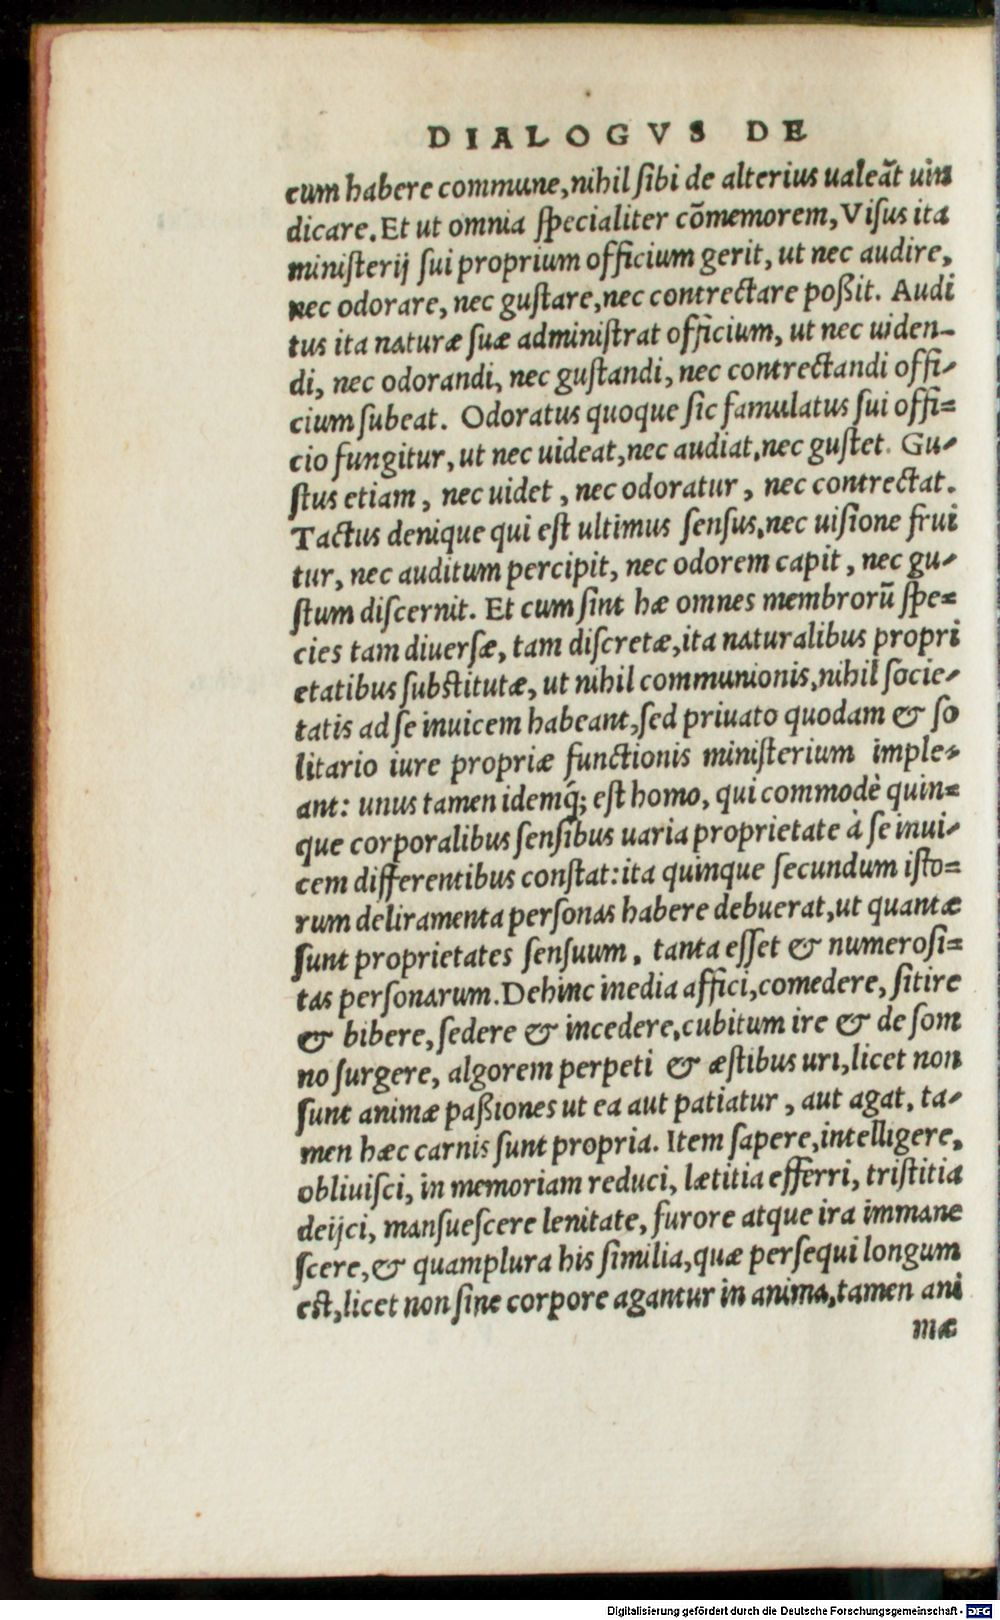 DIALOGVS DE
cum habere commune,nihil ſibi de alterius ualeāt uin
dicare.Et ut omnia ſpecialiter cōmemorem,Viſus ita
miniſterij ſui proprium officium gerit, ut nec audire,
nec odorare, nec guſtare,nec contrectare poßit. Audi
tus ita naturæ ſuæ adminiſtrat officium, ut nec uiden-
di, nec odorandi, nec guſtandi, nec contrectandi offi-
cium ſubeat. Odoratus quoque ſic famulatus ſui offi=
cio fungitur, ut nec uideat,nec audiat,nec guſtet. Gu-
ſtus etiam, nec uidet, nec odoratur, nec contrectat.
Tactus denique qui eſt ultimus ſenſus,nec uiſione frui
tur, nec auditum percipit, nec odorem capit, nec gu-
ſtum diſcernit. Et cum ſint hæ omnes membrorū ſpe=
cies tam diuerſæ, tam diſcretæ,ita naturalibus propri
etatibus ſubſtitutæ, ut nihil communionis,nihil ſocie-
tatis ad ſe inuicem habeant,ſed priuato quodam & ſo
litario iure propriæ functionis miniſterium imple-
ant: unus tamen idemq́; eſt homo, qui commodè quin=
que corporalibus ſenſibus uaria proprietate à ſe inui-
cem differentibus conſtat:ita quinque ſecundum iſto=
rum deliramenta perſonas habere debuerat,ut quantæ
ſunt proprietates ſenſuum, tanta eſſet & numeroſi=
tas perſonarum.Dehinc inedia affici,comedere, ſitire
& bibere, ſedere & incedere,cubitum ire & de ſom
no ſurgere, algorem perpeti & æſtibus uri,licet non
ſunt animæ paßiones ut ea aut patiatur, aut agat, ta-
men hæc carnis ſunt propria. Item ſapere,intelligere,
obliuiſci, in memoriam reduci, lætitia efferri, triſtitia
deijci, manſueſcere lenitate, furore atque ira immane
ſcere,& quamplura his ſimilia,quæ perſequi longum
eſt,licet non ſine corpore agantur in anima,tamen ani
mæ
Digitalisierung gefördert durch die Deutsche Forschungsgemeinschaft - DFG